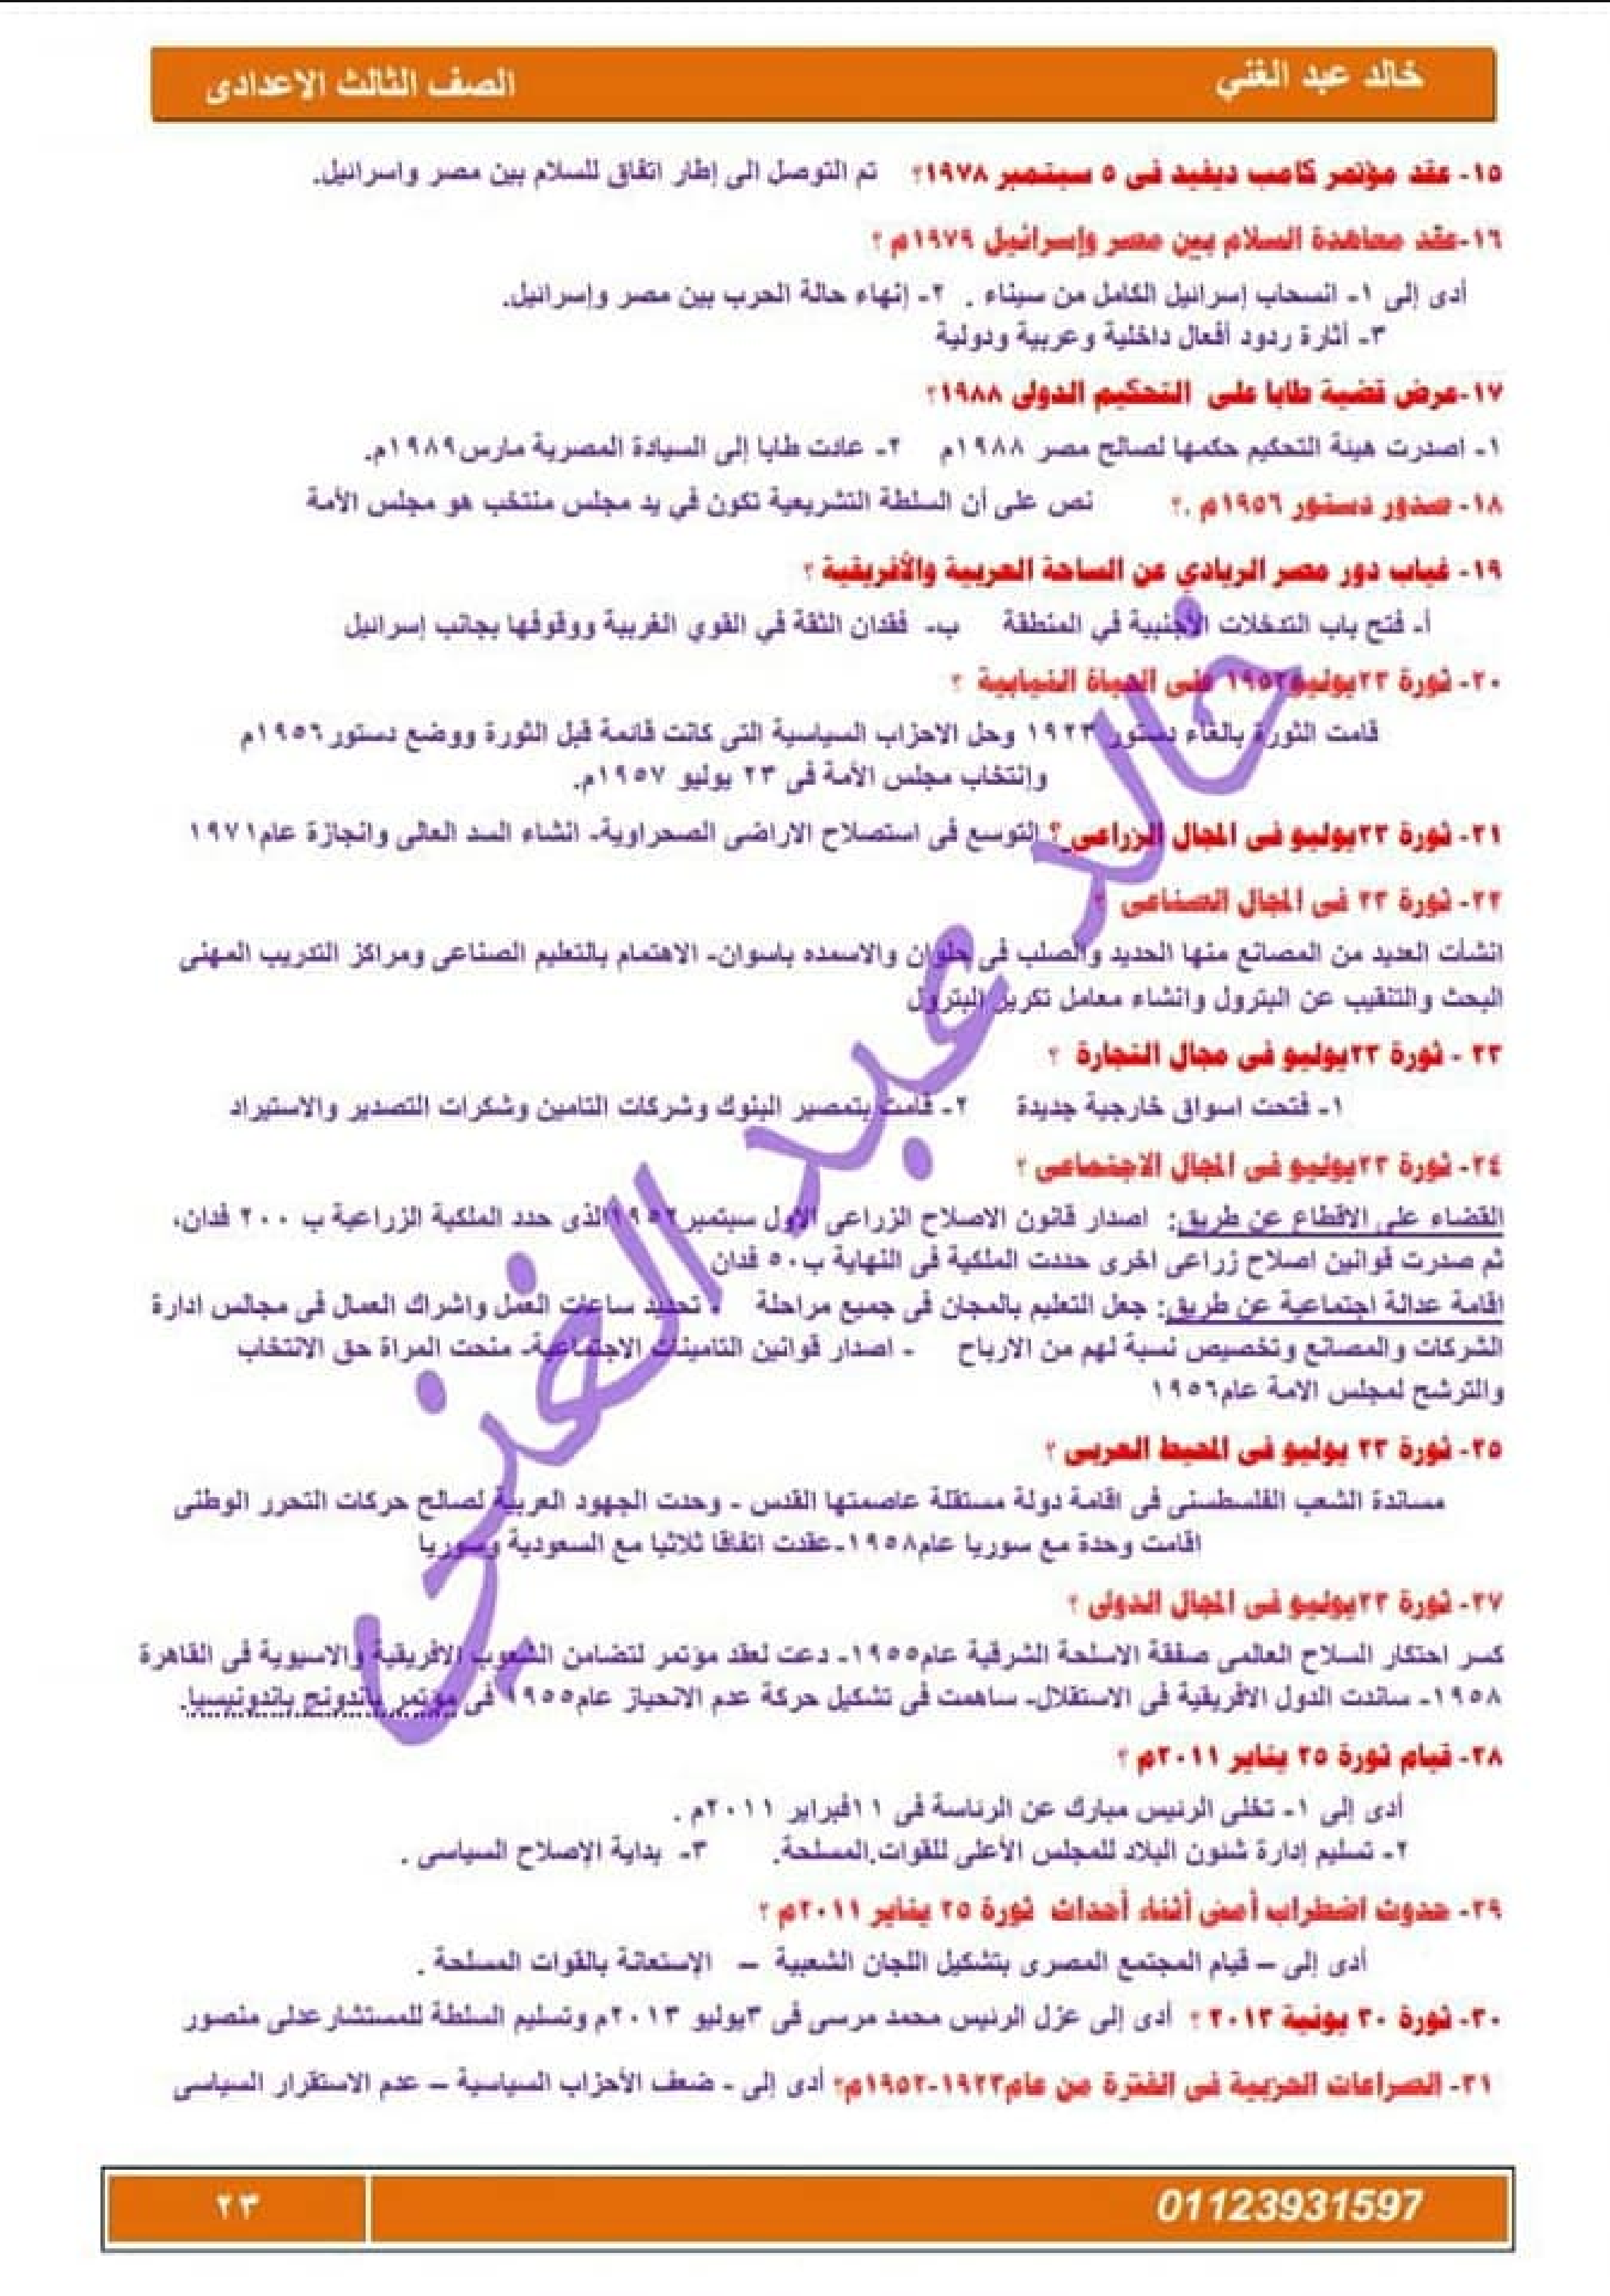 خالد عبد الغني
الصف الثالث الاعدادى
١٥- عقد مؤتمر كامب ديفيد فى ٥ سبتمبر ١٩٧٨؟ تم التوصل الى إطار اتفاق للسلام بين مصر واسرائيل.
١٦-عقد معاهدة السلام بين مصر وإسرائيل ١٩٧٩م ؟
أدى إلى ١- انسحاب إسرائيل الكامل من سيناء . ٢- إنهاء حالة الحرب بين مصر وإسرائيل.
٣- أثارة ردود أفعال داخلية وعربية ودولية
١٧-عرض قضية طابا على التحكيم الدولى ١٩٨٨؟
١- اصدرت هيئة التحكيم حكمها لصالح مصر ١٩٨٨م ٢- عادت طابا إلى السيادة المصرية مارس١٩٨٩م.
١٨- صدور دستور ١٩٥٦م .؟ نص على أن السلطة التشريعية تكون في يد مجلس منتخب هو مجلس الأمة
١٩- غياب دور مصر الريادي عن الساحة العربية والأفريقية ؟
أ- فتح باب التدخلات الأجنبية في المنطقة ب- فقدان الثقة في القوي الغربية ووقوفها بجانب إسرائيل
٢٠- ثورة ٢٣يوليو١٩٥٢ على الحياة النيابية ؟
قامت الثورة بالغاء دستور ١٩٢٣ وحل الاحزاب السياسية التى كانت قائمة قبل الثورة ووضع دستور١٩٥٦م
وإنتخاب مجلس الأمة فى ٢٣ يوليو ١٩٥٧م.
٢١- ثورة ٢٣يوليو فى المجال الزراعى ؟ التوسع فى استصلاح الاراضى الصحراوية- انشاء السد العالى وانجازة عام١٩٧١
٢٢- ثورة ٢٣ فى المجال الصناعى ؟
انشأت العديد من المصانع منها الحديد والصلب فى حلوان والاسمده باسوان- الاهتمام بالتعليم الصناعى ومراكز التدريب المهنى
البحث والتنقيب عن البترول وانشاء معامل تكرير البترول
٢٣ - ثورة ٢٣يوليو فى مجال التجارة ؟
١- فتحت اسواق خارجية جديدة ٢- قامت بتمصير البنوك وشركات التامين وشكرات التصدير والاستيراد
٢٤- ثورة ٢٣يوليو فى المجال الاجتماعى ؟
القضاء على الاقطاع عن طريق: اصدار قانون الاصلاح الزراعى الاول سبتمبر١٩٥٢الذى حدد الملكية الزراعية ب ٢٠٠ فدان،
ثم صدرت قوانين اصلاح زراعى اخرى حددت الملكية فى النهاية ب٥٠ فدان
اقامة عدالة اجتماعية عن طريق: جعل التعليم بالمجان فى جميع مراحلة ، تحديد ساعات العمل واشراك العمال فى مجالس ادارة
الشركات والمصانع وتخصيص نسبة لهم من الارباح - اصدار قوانين التامينات الاجتماعية- منحت المراة حق الانتخاب
والترشح لمجلس الامة عام١٩٥٦
٢٥- ثورة ٢٣ يوليو فى المحيط العربى ؟
مساندة الشعب الفلسطسنى فى اقامة دولة مستقلة عاصمتها القدس - وحدت الجهود العربية لصالح حركات التحرر الوطنى
اقامت وحدة مع سوريا عام١٩٥٨-عقدت اتفاقا ثلاثيا مع السعودية وسوريا
٢٧- ثورة ٢٣يوليو فى المجال الدولى ؟
كسر احتكار السلاح العالمى صفقة الاسلحة الشرقية عام١٩٥٥- دعت لعقد مؤتمر لتضامن الشعوب الافريقية والاسيوية فى القاهرة
١٩٥٨- ساندت الدول الافريقية فى الاستقلال- ساهمت فى تشكيل حركة عدم الانحياز عام١٩٥٥ فى مؤتمر باندونج باندونيسيا.
٢٨- قيام ثورة ٢٥ يناير ٢٠١١م ؟
أدى إلى ١- تخلى الرئيس مبارك عن الرئاسة فى ١١فبراير ٢٠١١م .
٢- تسليم إدارة شئون البلاد للمجلس الأعلى للقوات.المسلحة. ٣- بداية الإصلاح السياسى .
٢٩- حدوث اضطراب أمنى أثناء أحداث ثورة ٢٥ يناير ٢٠١١م ؟
أدى إلى – قيام المجتمع المصرى بتشكيل اللجان الشعبية – الإستعانة بالقوات المسلحة .
٣٠- ثورة ٣٠ يونية ٢٠١٣ ؟ أدى إلى عزل الرئيس محمد مرسى فى ٣يوليو ٢٠١٣م وتسليم السلطة للمستشارعدلى منصور
٣١- الصراعات الحزبية فى الفترة من عام١٩٢٣-١٩٥٢م؟ أدى إلى - ضعف الأحزاب السياسية – عدم الاستقرار السياسى
خالد عبد الغنى
01123931597
٢٣